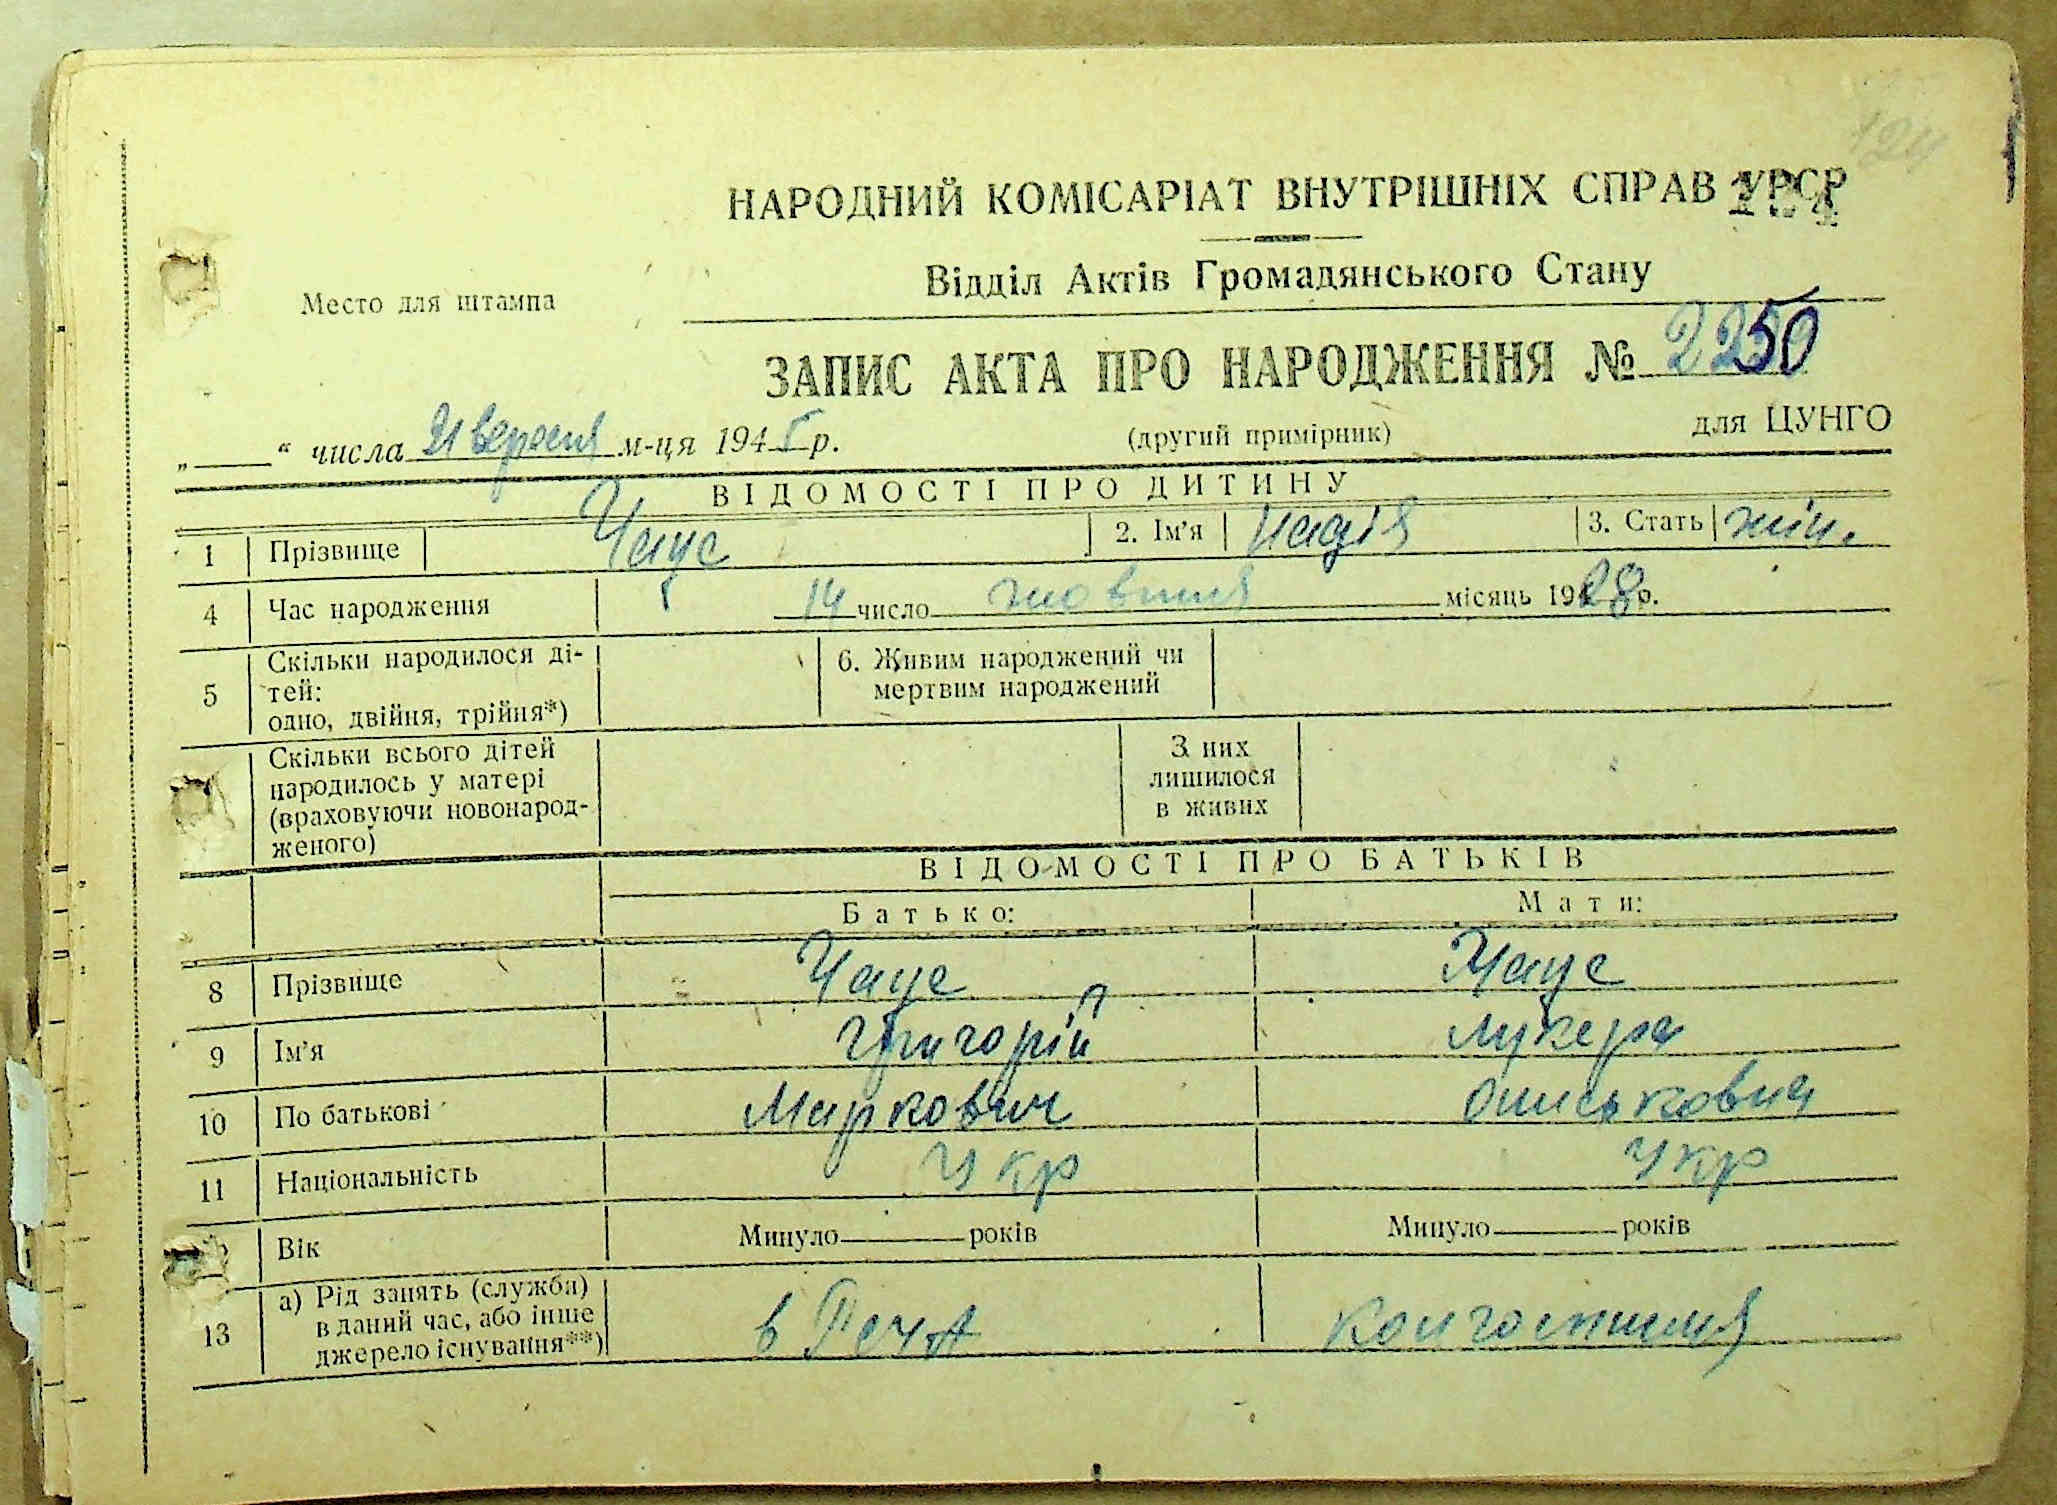 124
НАРОДНИЙ КОМІСАРІАТ ВНУТРІШНІХ СПРАВ УРСР
Відділ Актів Громадянського Стану
Место для штампа
ЗАПИС АКТА ПРО НАРОДЖЕННЯ № 2250
„ “ числа 21 вересня м-ця 1945 р. (другий примірник) для ЦУНГО
ВІДОМОСТІ ПРО ДИТИНУ
1 Прізвище Чаус 2. Ім’я Надія 3. Стать жін.
4 Час народження 14 число жовтня місяць 1928 р.
5 Скільки народилося ді-
тей:
одно, двійня, трійня*)
6. Живим народжений чи
мертвим народжений
Скільки всього дітей
народилось у матері
(враховуючи новонарод-
женого)
З них
лишилося
в живих
ВІДОМОСТІ ПРО БАТЬКІВ
Батько: Мати:
8 Прізвище Чаус Чаус
9 Ім’я Григорій Лукера
10 По батькові Маркович Ониськовна
11 Національність Укр Укр
Вік Минуло років Минуло років
13 а) Рід занять (служба)
в даний час, або інше
джерело існування**)
в РСЧА колгоспниця